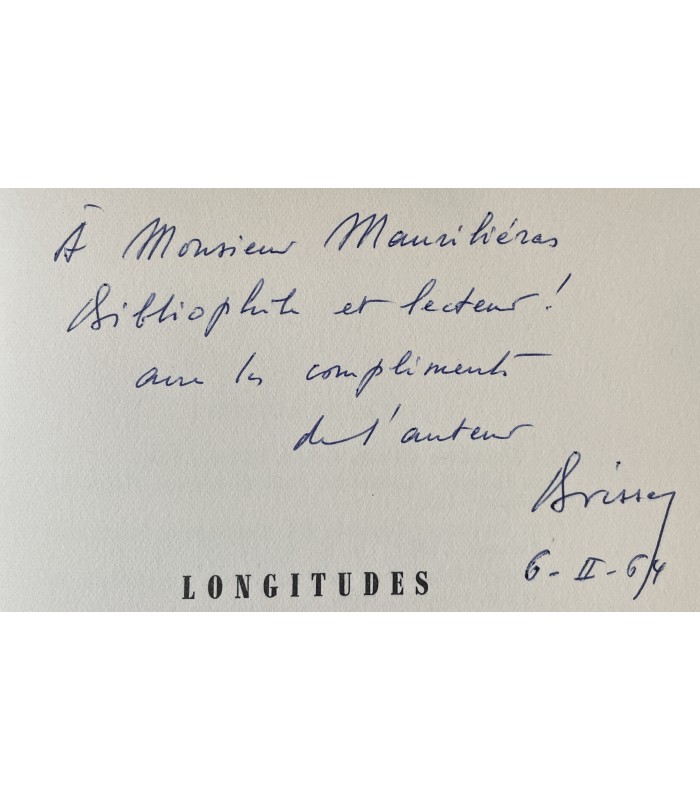 À Monsieur Mauriliéras
Bibliophile et lecteur !
avec les compliments
de l'auteur
Brissey
6-II-64
LONGITUDES